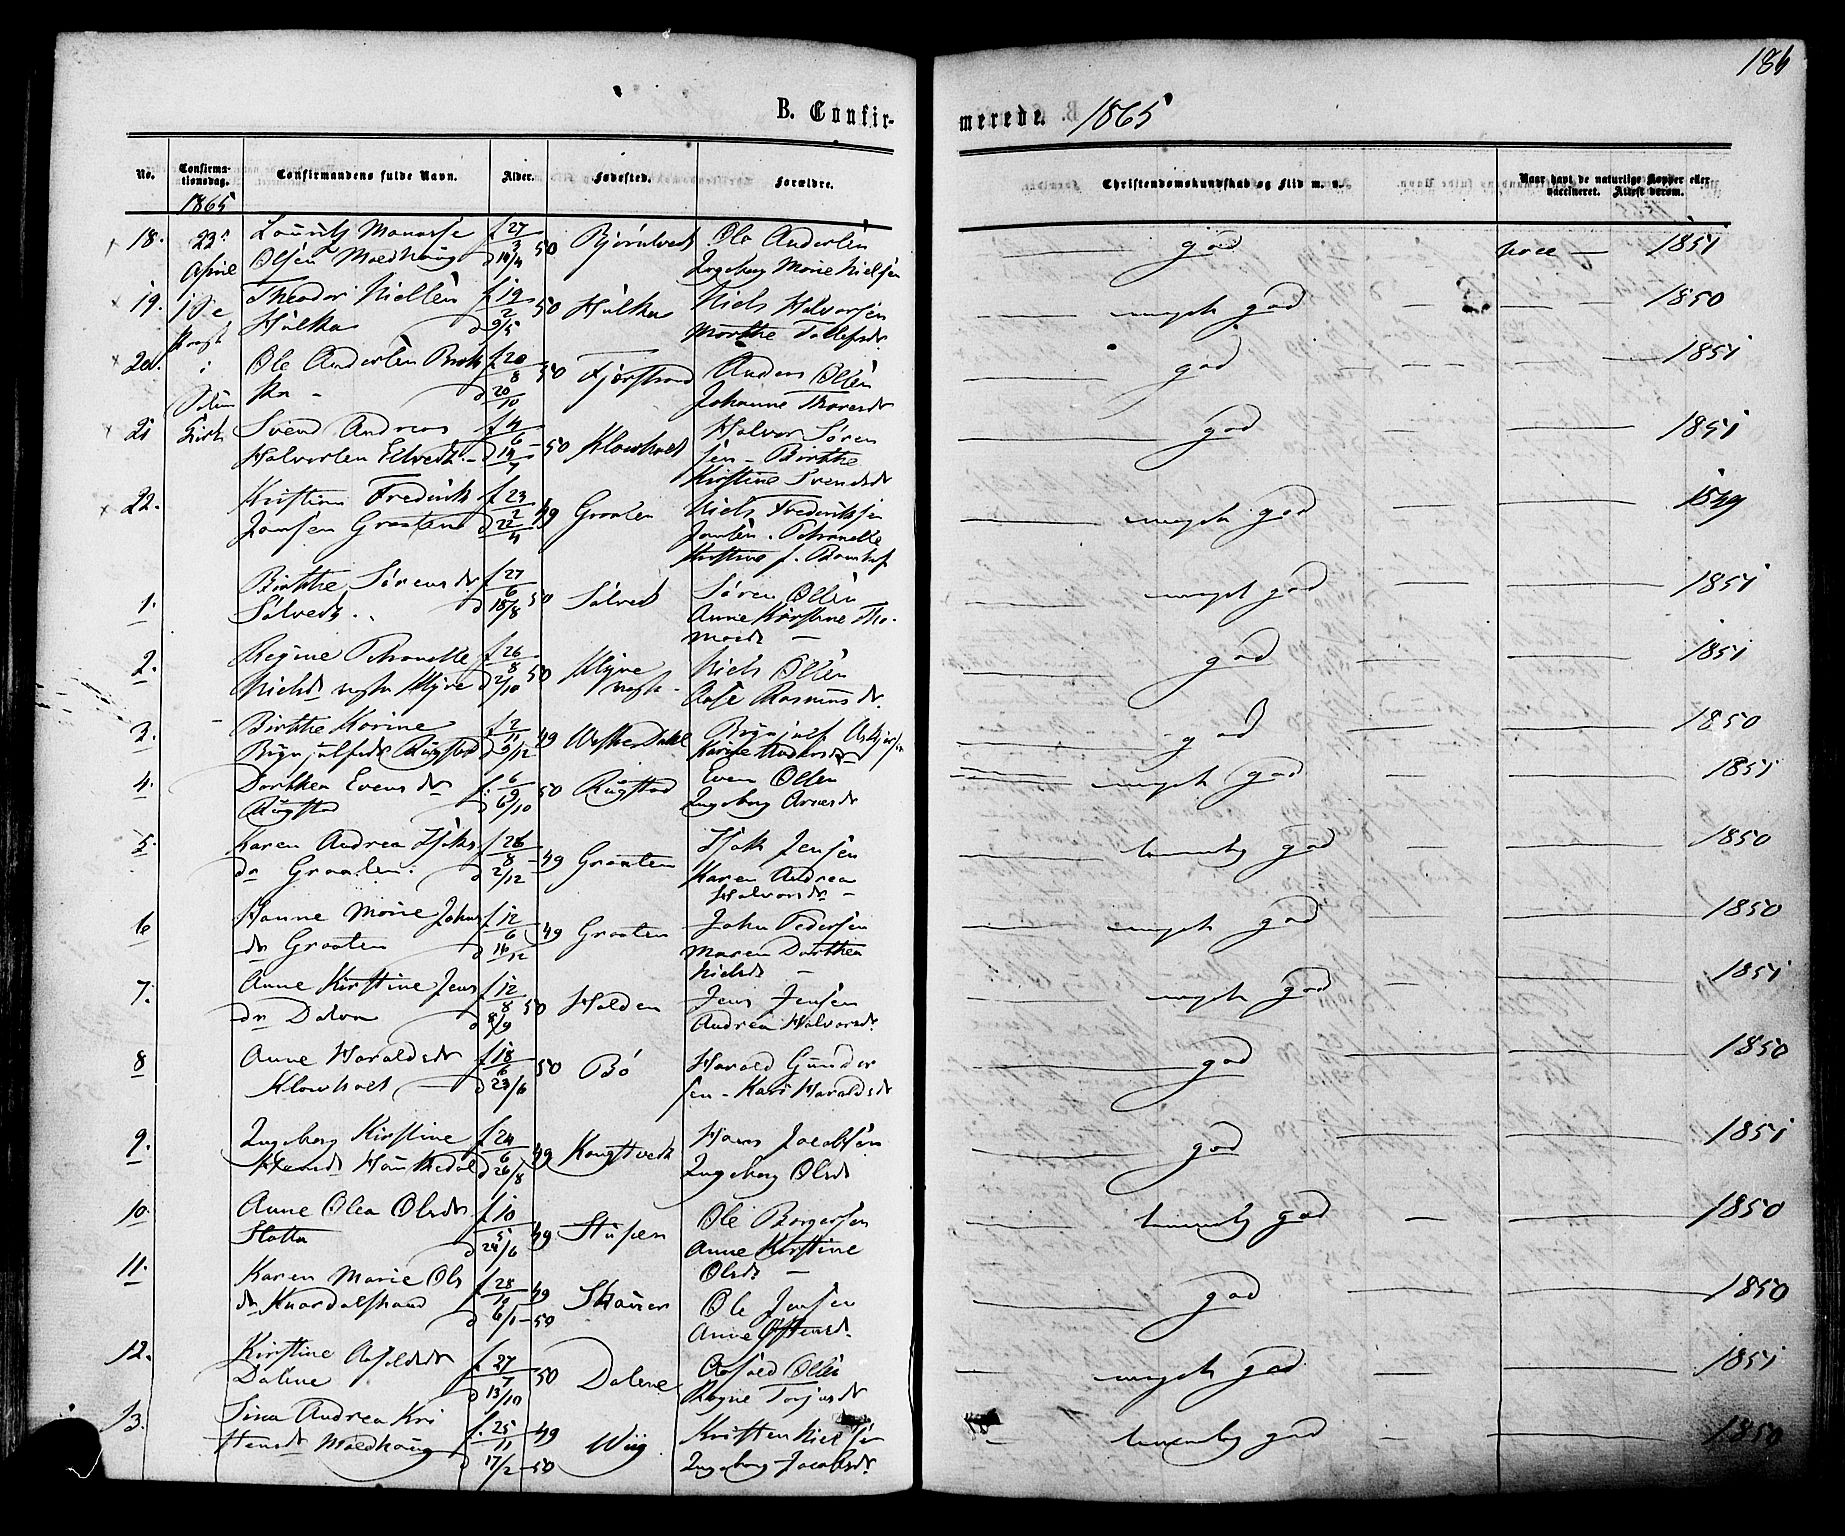 186
B. Confirmerede. 1865
No. Confirmationsdag. Confirmandens fulde Navn. Alder. Fødested. Forældre. Christendomskundskab og Flid m. v. Naar havt de naturlige Kopper eller vaccineret. Attest derom.
1865
18. 23de Lauritz Manasse f 27/3 50 Bjørntvedt Ole Andersen god vacc — 1851
April Olsen Moedhaug d 14/4 Ingeborg Marie Nielsen
19. Theodor Nielsen f 19/2 50 Hulka Niels Halvorsen meget god 1850
Hulka d 9/5 Marthe Tollefsdr
20. i Ole Andersen f 20/8 50 Fjærestrand Anders Olsen god 1851
d 20/10 Johanne Thoresdr
21 Kirke Svend Andreas f 4/6 50 Klovholt Halvor Søren god 1851
Halvorsen d 14/7 sen – Birthe
Kirstine Svendsdr
22. Kristian Fredrik f 23/2 49 Graaten Niels Frederiksen meget god 1849
Jansen Graaten d 22/4 Jansen. Petronelle
Kirstine f.
1. Birthe Sørensdr f 27/6 50 Solvedt Søren Olsen meget god 1851
Solvedt d 18/8 Anne Kirstine Tho-
masdr
2. Regine Petronelle f 26/8 50 Myre Niels Olsen god 1851
Nielsdr Myre d 2/10 Aase Rasmusdr.
3. Birthe Karine f 2/11 49 Westerdahl Brynjulf god 1850
Brynjulfsdr Rugstad d 9/12 Karine Andersdr
4. Dorthea Evensdr f. 6/9 50 Rugstad Even Olsen meget god 1851
Rugstad d 6/10 Ingeborg Arnesdr
5. Karen Andrea Isaks f 26/8 49 Graaten Isak Jensen temmelig god 1850
dr Graaten. d 2/12 Karen Andrea
Halvorsdr
6 Hanne Marie Johns f 12/6 49 Graaten John Pedersen meget god 1850
dr Graaten d 16/12 Maren Dorthea
Nielsdr
7. Anne Kirstine Jens f 12/8 50 Holden Jens Jensen meget god 1851
dr Dalen d 8/9 Andrea Halvorsdr.
8 Anne Haraldsdr f 18/6 50 Bø Harald Gunder god 1850
Klovholt d 23/6 sen – Kari Haraldsdr
9. Ingeborg Kirstine f 24/6 49 Kongtvedt Hans Jacobsen god 1851
Hansdr d 26/8 Ingeborg Olsdr
10. Anne Olea Olsdr f 10/5 49 Stusen Ole Borgersen temmelig god 1850
Slotta d 24/6 Anne Kirstine
Olsdr
11. Karen Marie Ols f 28/12 49 Skauen Ole Jensen god 1850
dr Knardalstrand d 6/1 – 50 Anne
12. Kirstine f 27/7 50 Dalene Olsen meget god 1851
Dalene d 13/10 Torjusdr
13. Sina Andrea Kri f. 25/11 49 Wiig Kristen Nielsen temmelig god 1850
stensdr Moedhaug d 17/2 – 50 Ingeborg Jacobsdr.